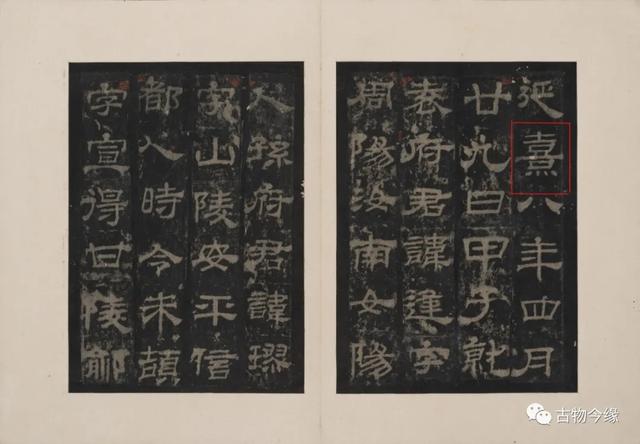 延熹八年四月
廿九日甲子就
袁府君諱逢字
周陽汝南女陽
人孫府君諱璆
字山陵安平信
都人時令朱頡
字宣得甘陵鄃
古物今缘